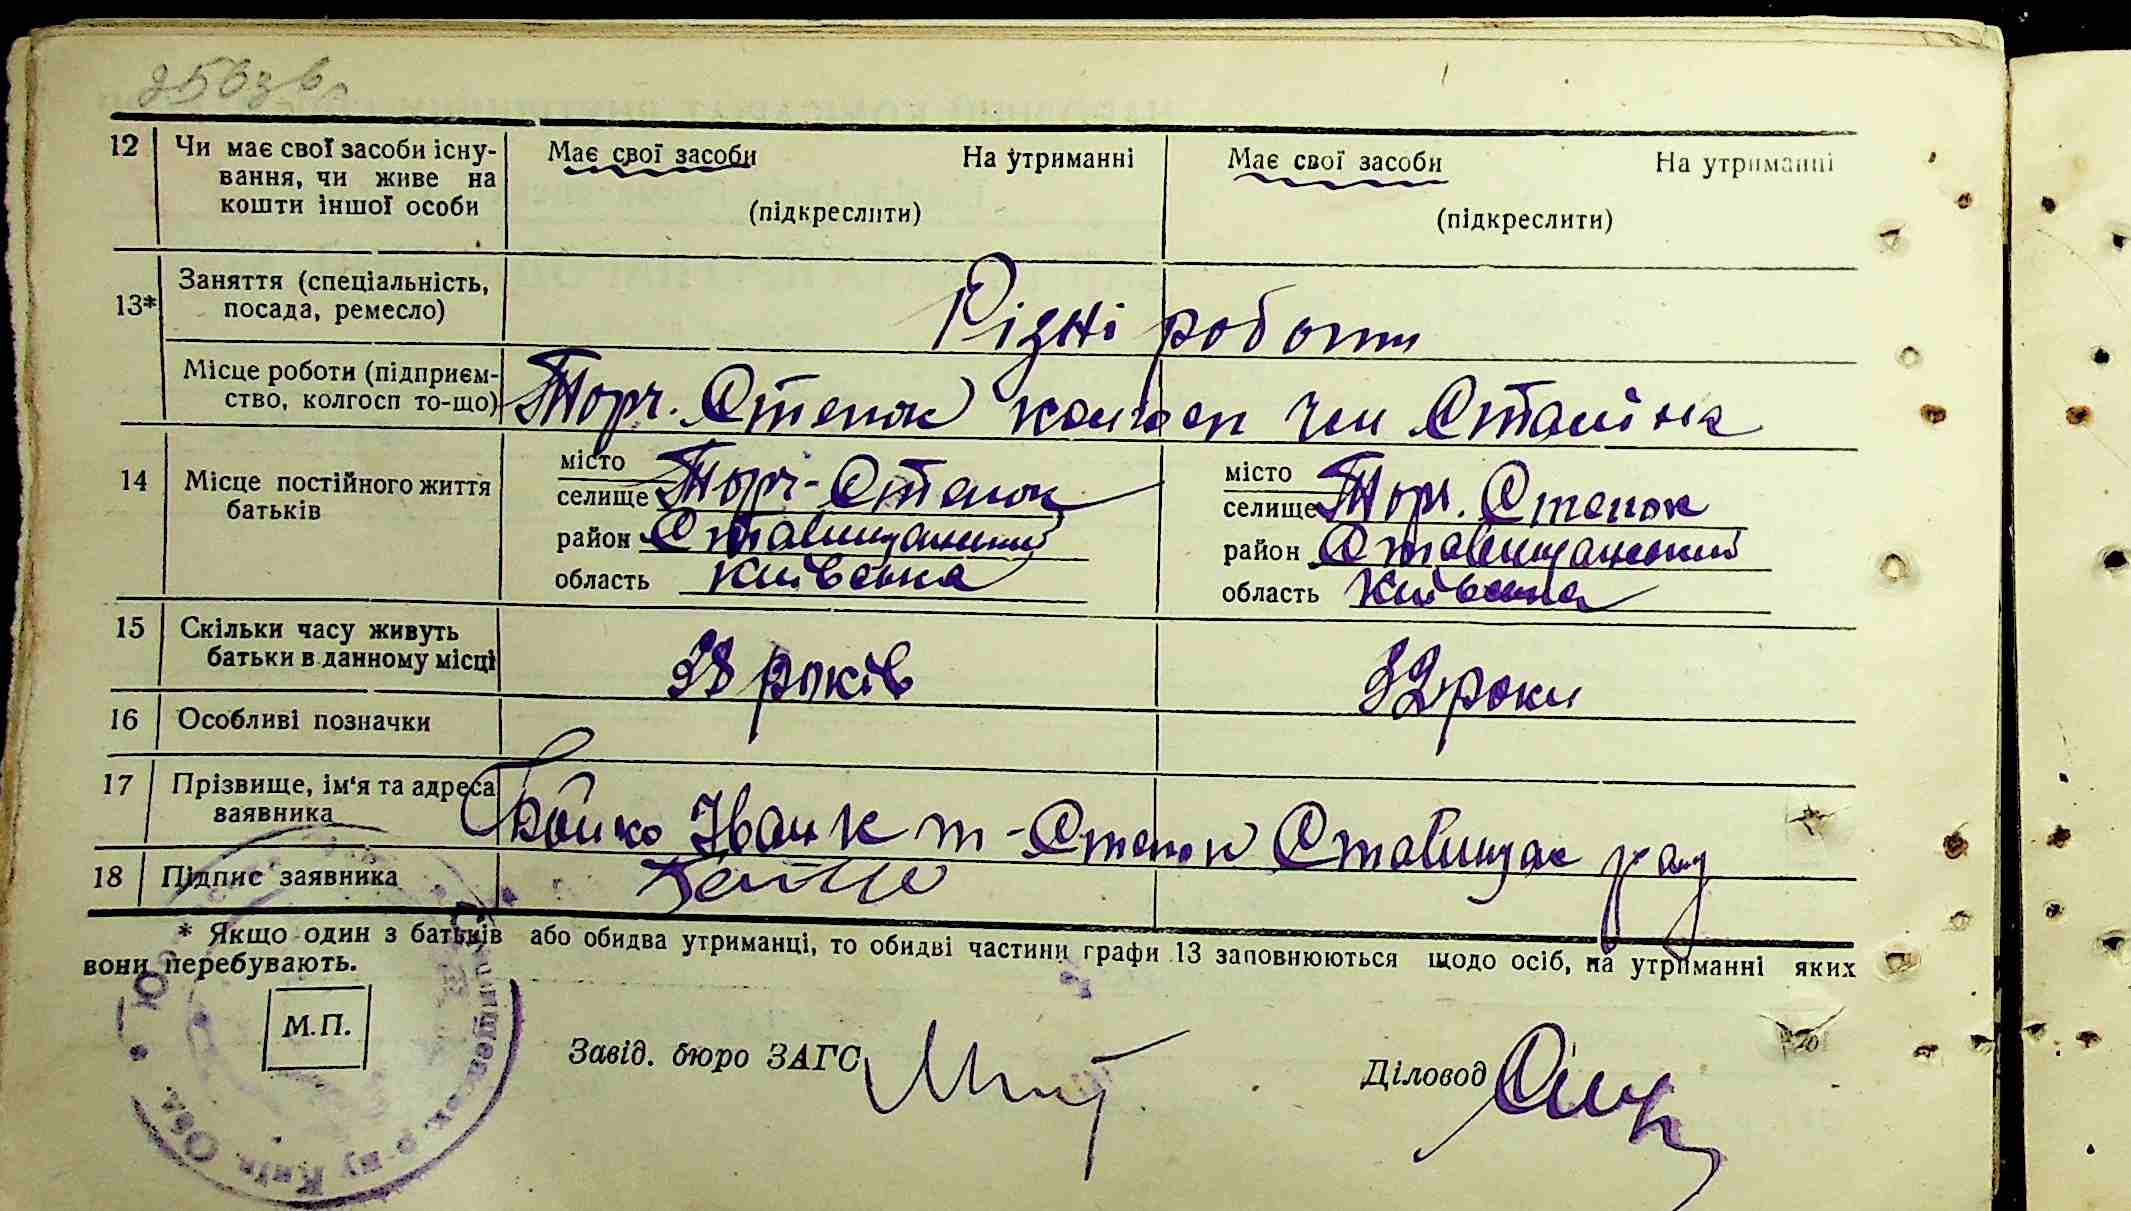 12 Чи має свої засоби існу- Має свої засоби На утриманні Має свої засоби На утриманні
вання, чи живе на
кошти іншої особи (підкреслити) (підкреслити)
13* Заняття (спеціальність,
посада, ремесло) Різні роботи
Місце роботи (підприєм-
ство, колгосп то-що) Торч. Степок колгосп ім Сталіна
14 Місце постійного життя місто місто
батьків селище Торч-Степок селище Торч. Степок
район Ставищанський район Ставищанський
область Київська область Київська
15 Скільки часу живуть
батьки в данному місці 38 років 32 роки
16 Особливі позначки
17 Прізвище, ім'я та адреса
заявника Бойко Іван К т-Степок Ставищан рай
18 Підпис заявника
* Якщо один з батьків або обидва утриманці, то обидві частини графи 13 заповнюються щодо осіб, на утриманні яких
вони перебувають.
М.П.
Завід. бюро ЗАГС Діловод
р-ну Київ. Обл.